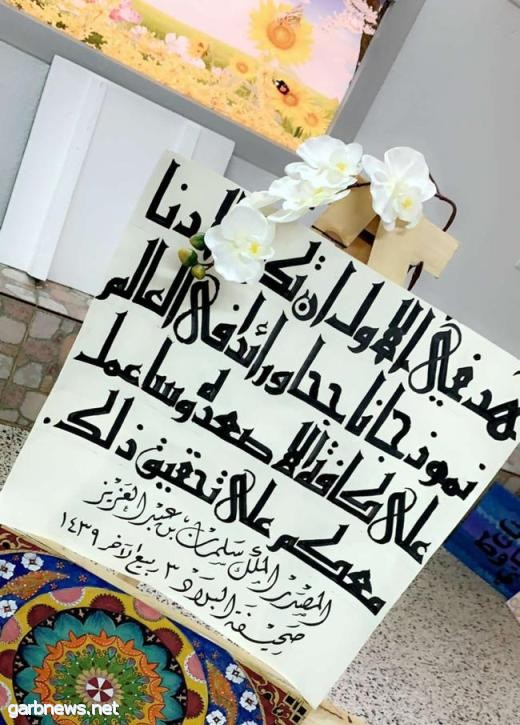 هدفي الأول أن تكون بلادنا
نموذجا ناجحا ورائدا في العالم
على كافة الأصعدة وسأعمل
معكم على تحقيق ذلك.
المصدر الملك سلمان بن عبد العزيز
صحيفة البلاد ٣ ربيع الآخر ١٤٣٩
garbnews.net